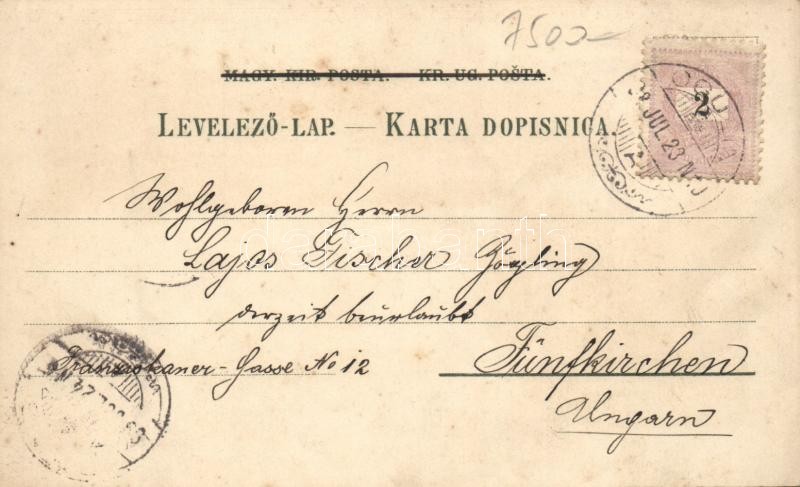 7500-
MAGY. KIR. POSTA. KR. UG. POŠTA.
LEVELEZŐ-LAP. — KARTA DOPISNICA.
2
OGU
JUL 23
Wohlgeboren Herrn
Lajos Fischer Zögling
derzeit beurlaubt
Franziskaner-Gasse No 12
Fünfkirchen
Ungarn